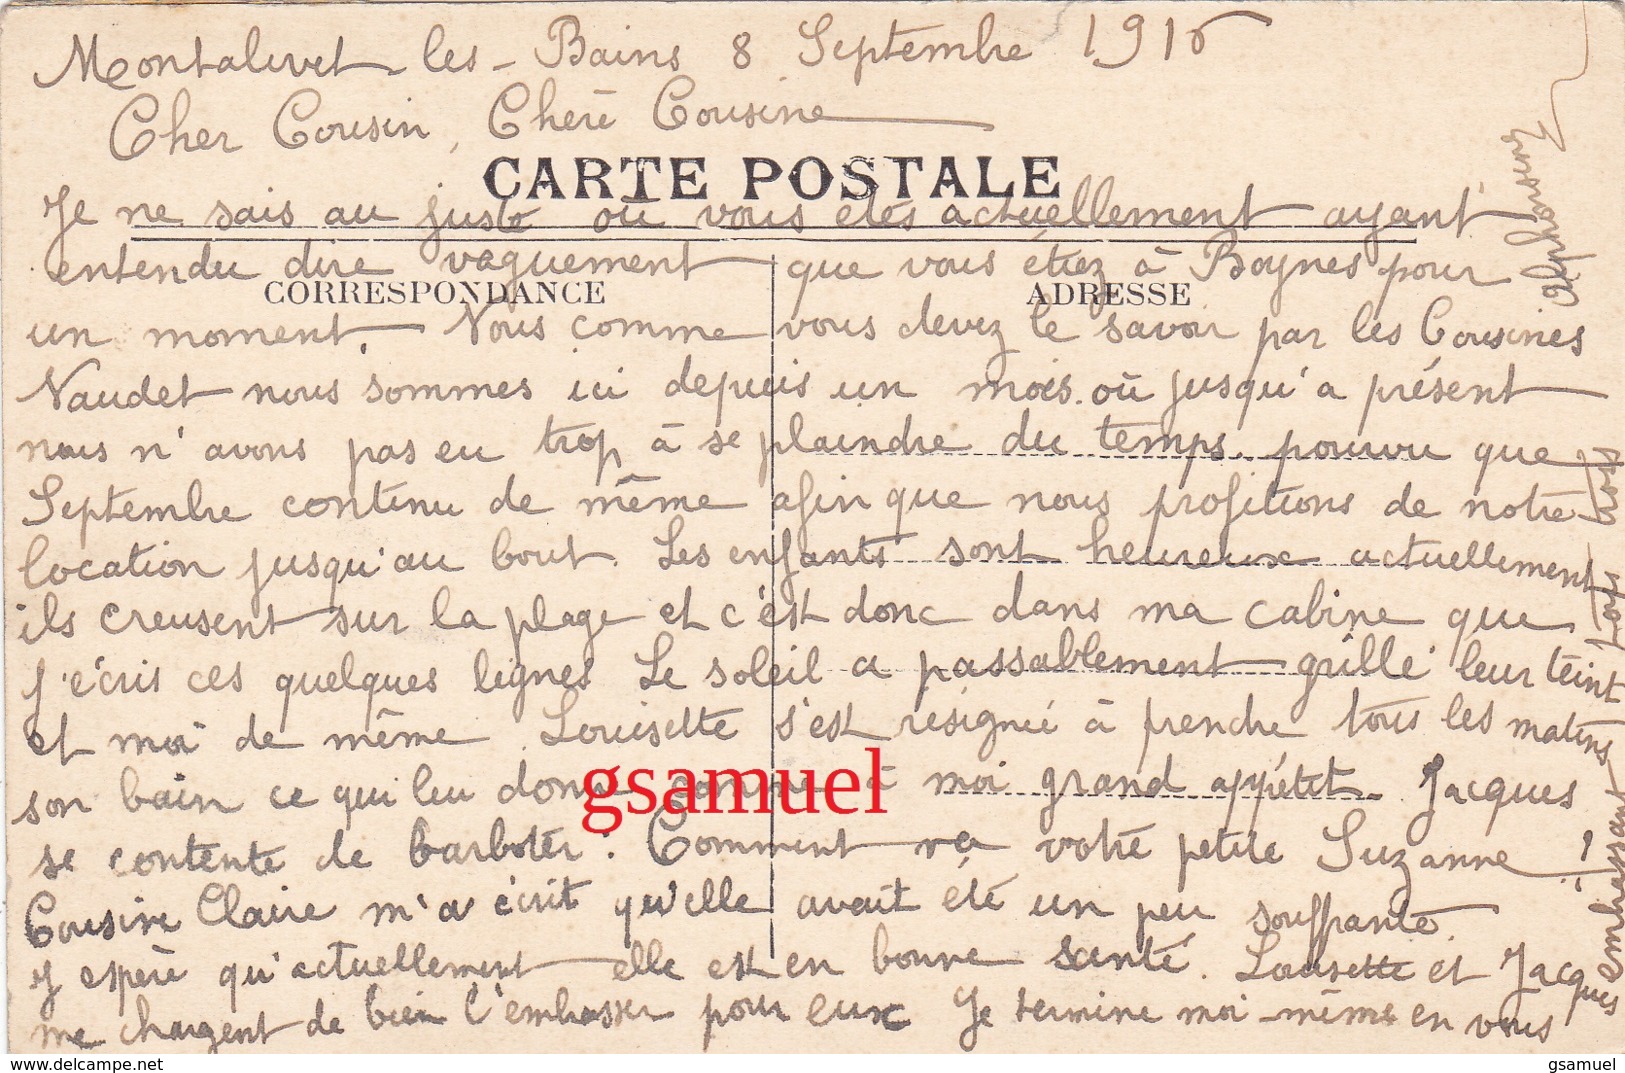 Montalivet les - Bains 8 Septembre 1916
Cher Cousin, Chère Cousine
CARTE POSTALE
Je ne sais au juste où vous êtes actuellement ayant
entendu dire vaguement que vous étiez à Boynes pour
CORRESPONDANCE ADRESSE
un moment. Nous comme vous devez le savoir par les Cousines
Naudet nous sommes ici depuis un mois où jusqu'à présent
nous n'avons pas eu trop à se plaindre du temps pourvu que
Septembre continu de même afin que nous profitions de notre
location jusqu'au bout. Les enfants sont heureux actuellement
ils creusent sur la plage et c'est donc dans ma cabine que
j'écris ces quelques lignes Le soleil a passablement grillé leur teint
et moi de même. Louisette s'est résignée à prendre tous les matins
son bain ce qui leu donne comme à moi grand appétit. Jacques
gsamuel
se contente de barboter. Comment va votre petite Suzanne ?
Cousine Claire m'a écrit qu'elle avait été un peu souffrante.
J'espère qu'actuellement elle est en bonne santé. Louisette et Jacques
me chargent de bien l'embrasser pour eux Je termine moi-même en vous
embrassant tous
Alphonsine
http://www.delcampe.net
gsamuel